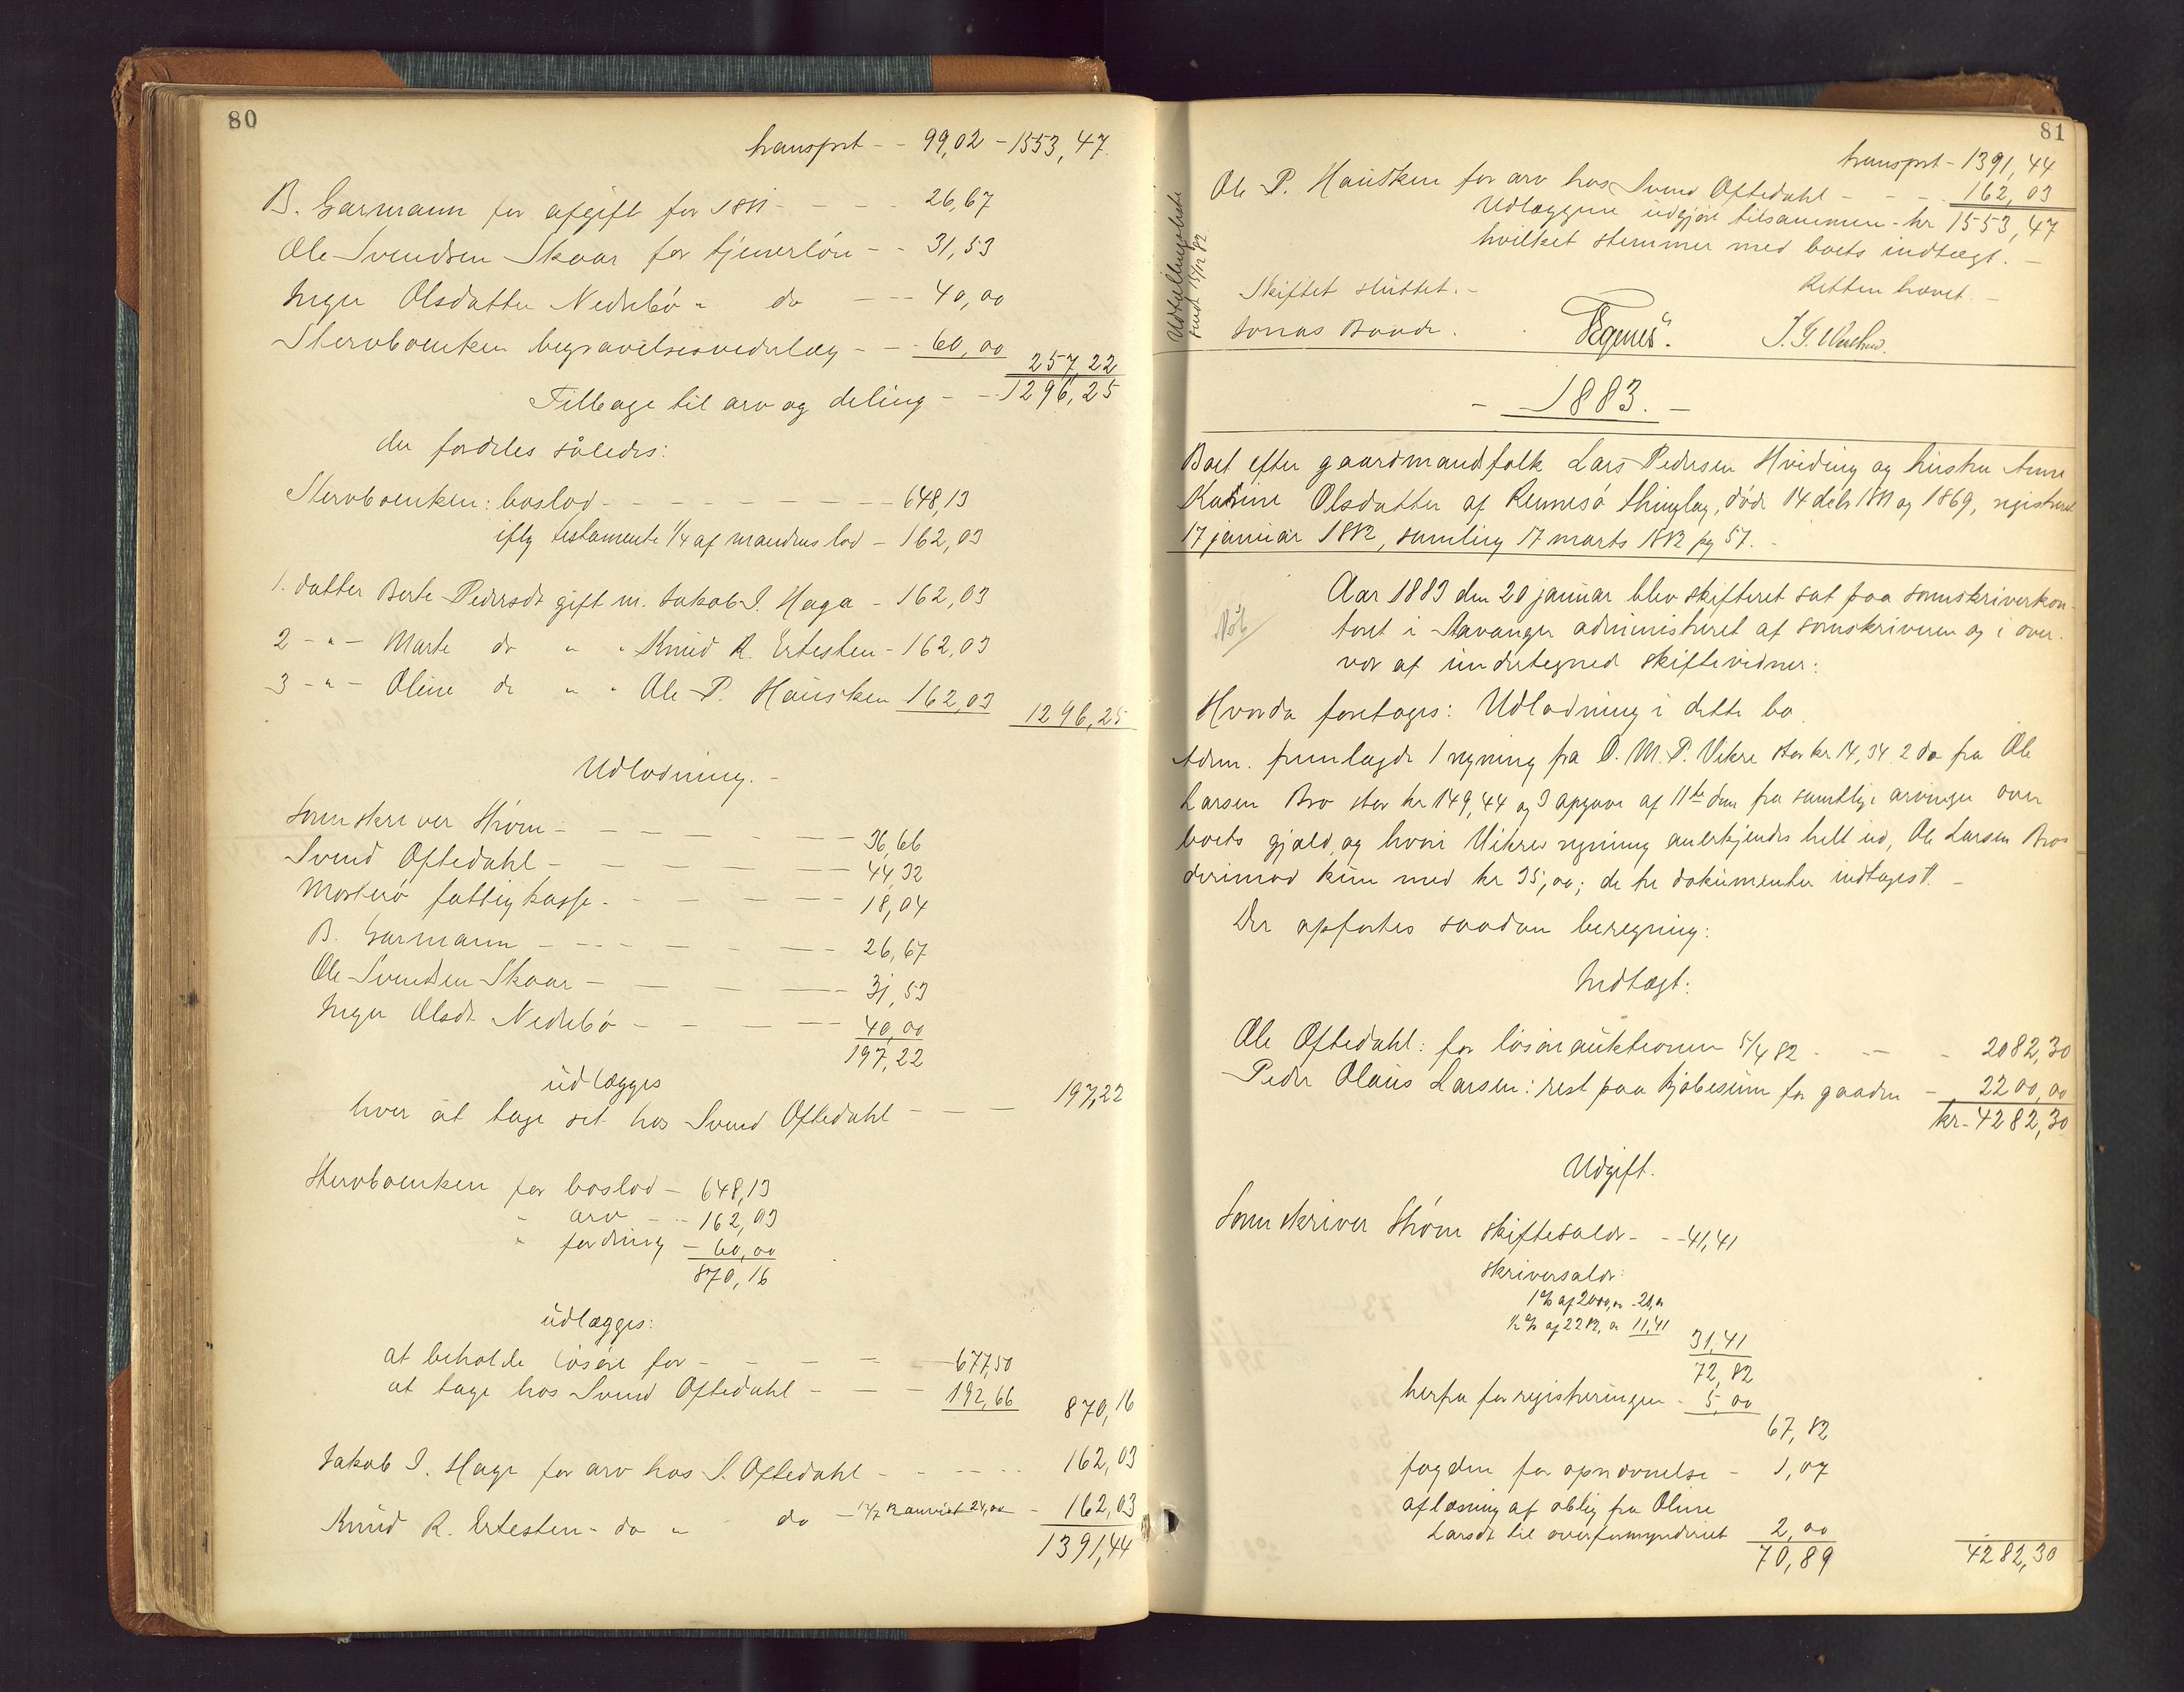 80
transport - - 99,02 - 1553,47
B. Garmann for afgift for 1881 - - - - 26,67
Ole Svendsen Skaar for tjenerløn - - 31,53
Inger Olsdatter Nedrebø - do - - - 40,00
Stervboenken begravelsesvederlag - - 60,00
257,22
Tilbage til arv og deling - - 1296,25
der fordeles således:
Stervboenken: boslod - - - - - - - - 648,13
iflg testamente 1/4 af mandens lod - 162,03
1. datter Berte Pedersdt gift m. Jakob I. Haga - 162,03
2 - " - Marte do " " Knud R. Ertesten - 162,03
3 - " - Oline do " " Ole P. Hausken 162,03
1296,25
Udlodning. -
Sorenskriver Strøm - - - - - - - 36,66
Svend Oftedahl - - - - - - 44,32
Mosterø fattigkasse - - - - - - 18,04
B. Garmann - - - - - - - 26,67
Ole Svendsen Skaar - - - - - 31,53
Inger Olsdt Nedrebø - - - - - 40,00
197,22
udlægges
hver at tage sit hos Svend Oftedahl - - - 197,22
Stervboenken for boslod - 648,13
" arv - - 162,03
" fordring - 60,00
870,16
udlægges:
at beholde løsøre for - - - - - 677,50
at tage hos Svend Oftedahl - - - 192,66
870,16
Jakob I. Haga for arv hos S. Oftedahl - - - - - 162,03
Knud R. Ertesten - do " do - anvist 24,00 - 162,03
1391,44
81
transport - 1391,44
Ole P. Hausken for arv hos Svend Oftedahl - - - 162,03
Udlæggene udgjør tilsammen - kr 1553,47
hvilket stemmer med boets indtægt. -
Skiftet sluttet. - Retten hævet. -
Jonas Baade.
- 1883. -
Boet efter gaardmandsfolk Lars Pedersen Hviding og hustru Anne
Katrine Olsdatter af Rennesø thinglag, døde 14 debr 1881 og 1869, registreret
17 januar 1882, samling 17 marts 1882 pg 57. -
Aar 1883 den 20 januar blev skifteret sat paa sorenskriverkon-
toret i Stavanger administreret af sorenskriveren og i over-
vær af undertegnede skiftevidner:
Hvorda foretoges: Udlodning i dette bo.
Adm. fremlagde 1 regning fra O. M. P. Vikre stor kr 14,34 2 do fra Ole
Larsen Bro stor kr 149,44 og 3 opgave af 11te dm fra samtlige arvinger over
boets gjæld, og hvori Vikres regning anerkjendes helt ud, Ole Larsen Bros
derimod kun med kr 35,00; de tre dokumenter indtages ff. -
Der opførtes saadan beregning:
Indtægt:
Ole Oftedahl: for løsøreauktionen 5/4 82 - - - 2082,30
Peder Olaus Larsen: rest paa kjøbesum for gaarden - 2200,00
kr - 4282,30
Udgift.
Sorenskriver Strøm skiftesalær - - - 41,41
skriversalær:
1 % af 2000,00 - 20,00
1/2 % af 2282,00 11,41
31,41
72,82
herfra for registreringen - 5,00
67,82
fogden for opnævnelse - 1,07
aflæsning af oblig fra Oline
Larsdt til overformynderiet 2,00
70,89 4282,30